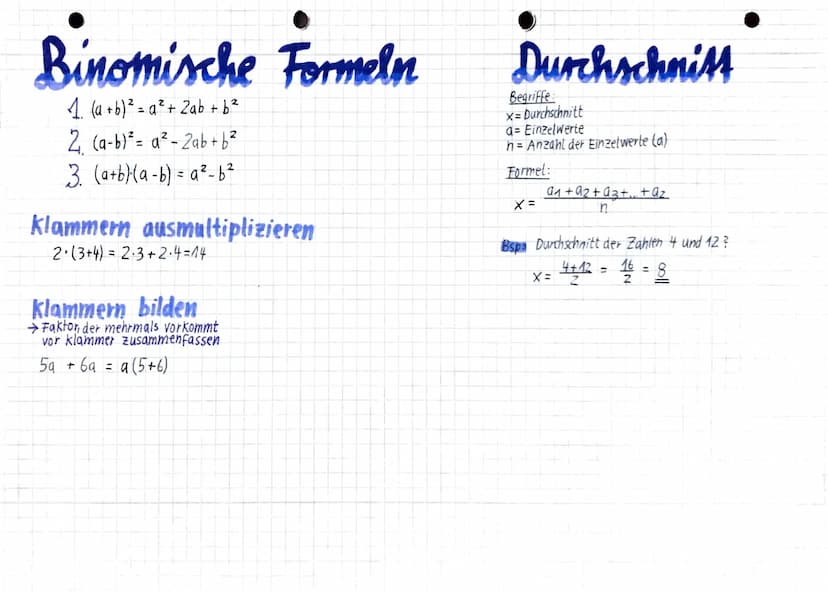 Binomische Formeln
1. (a+b)² = a² + 2ab + b²
2. (a-b)² = a² - 2ab + b²
3. (a+b)·(a-b) = a² - b²
Klammern ausmultiplizieren
2·(3+4) = 2·3 + 2·4 = 14
Klammern bilden
→ Faktor, der mehrmals vorkommt
vor Klammer zusammenfassen
5a + 6a = a(5+6)
Durchschnitt
Begriffe:
x = Durchschnitt
a = Einzelwerte
n = Anzahl der Einzelwerte (a)
Formel:
x = (a1 + a2 + a3 + ... + az) / n
Bsp: Durchschnitt der Zahlen 4 und 12?
x = 4+12 / 2 = 16 / 2 = 8